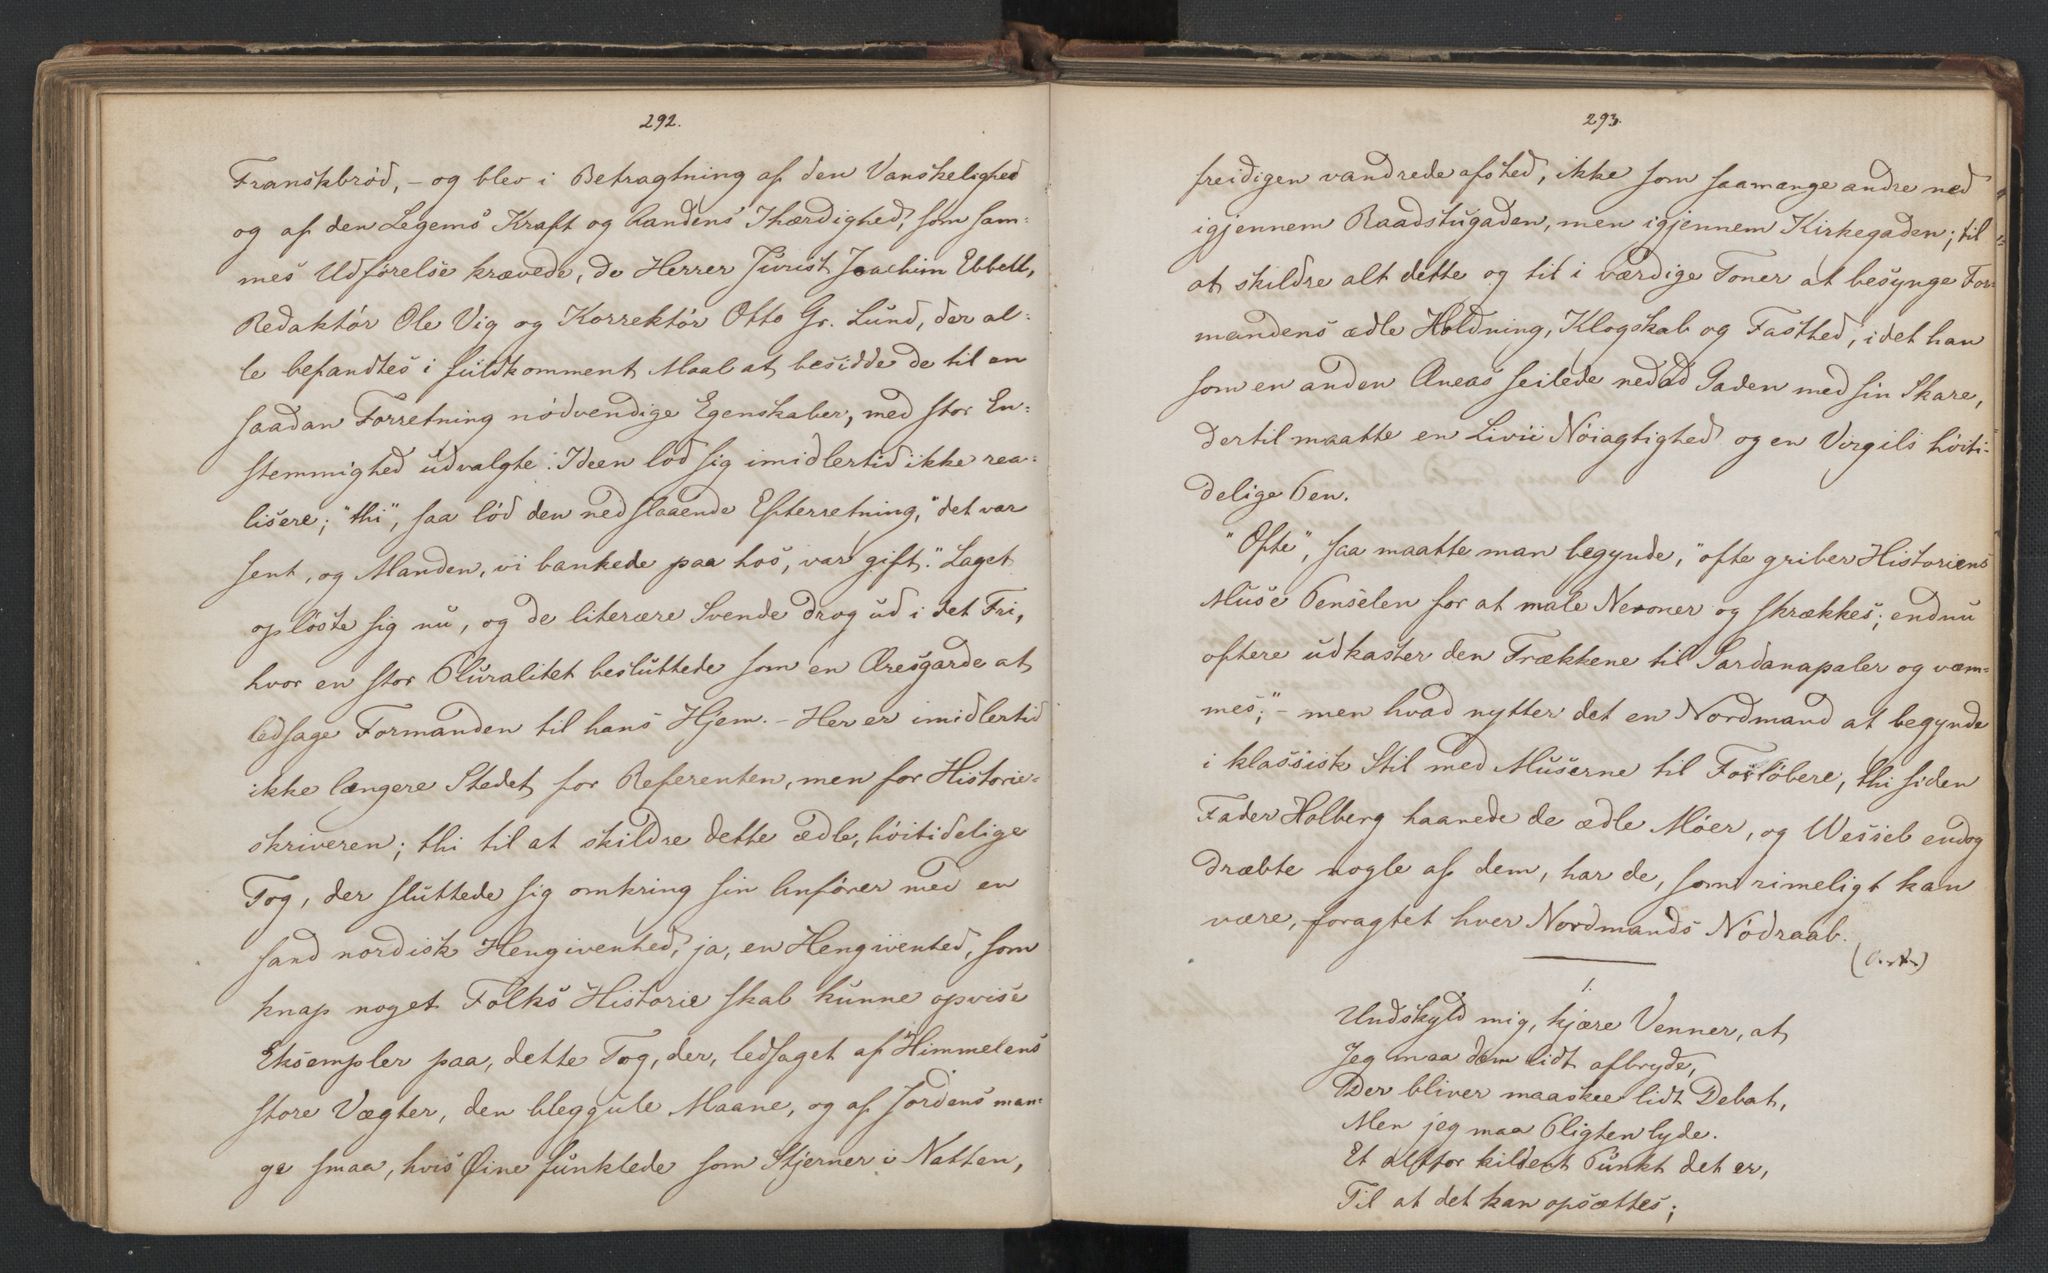 292.
Franskbrød, - og blev i Betragtning af den Vanskelighed
og af den Legems Kraft og Aandens Ihærdighed, som sam=
mes Udførelse krævede, de Herrer Jurist Joachim Ebbell,
Redaktør Ole Vig og Korrektør Otto Gr. Lund, der al=
le befandtes i fuldkomment Maal at besidde de til en
saadan Forretning nødvendige Egenskaber, med stor En=
stemmighed udvalgte. Ideen lod sig imidlertid ikke rea=
lisere; "thi", saa lød den nedslaaende Efterretning, "det var
sent, og Manden, vi bankede paa hos, var gift." Laget
opløste sig nu, og de literære Svende drog ud i det Fri,
hvor en stor Pluralitet besluttede som en Æresgarde at
ledsage Formanden til hans Hjem. - Her er imidlertid
ikke længere Stedet for Referenten, men for Historie=
skriveren; thi til at skildre dette ædle, høitidelige
Tog, der sluttede sig omkring sin Anfører med en
sand nordisk Hengivenhed, ja, en Hengivenhed, som
knap noget Folks Historie skal kunne opvise
Eksempler paa, dette Tog, der, ledsaget af Himmelens
store Vægter, den bleggule Maane, og af Jordens man=
ge smaa, hvis Øine funklede som Stjerner i Natten,
293.
freidigen vandrede afsted, ikke som saamange andre ned
igjennem Raadstugaden, men igjennem Kirkegaden; til
at skildre alt dette og til i værdige Toner at besynge For=
mandens ædle Holdning, Klogskab og Fasthed, idet han
som en anden Æneas seilede nedad Gaden med sin Skare,
dertil maatte en Livii Nøiagtighed og en Virgils høiti=
delige Pen.
"Ofte", saa maatte man begynde, "ofte griber Historiens
Muse Penselen for at male Neroner og skrækkes; endnu
oftere udkaster den Trækkene til Sardanapaler og væm=
mes;" - men hvad nytter det en Nordmand at begynde
i klassisk Stil med Muserne til Forløbere, thi siden
Fader Holberg haanede de ædle Møer, og Wessel endog
dræbte nogle af dem, har de, som rimeligt kan
være, foragtet hver Nordmands Nødraab.
1.
Undskyld mig, kjære Venner, at
Jeg maa dem lidt afbryde,
Der bliver maaskee lidt Debat,
Men jeg maa Pligten lyde.
Et altfor kildent Punkt det er,
Til at det kan opsættes;